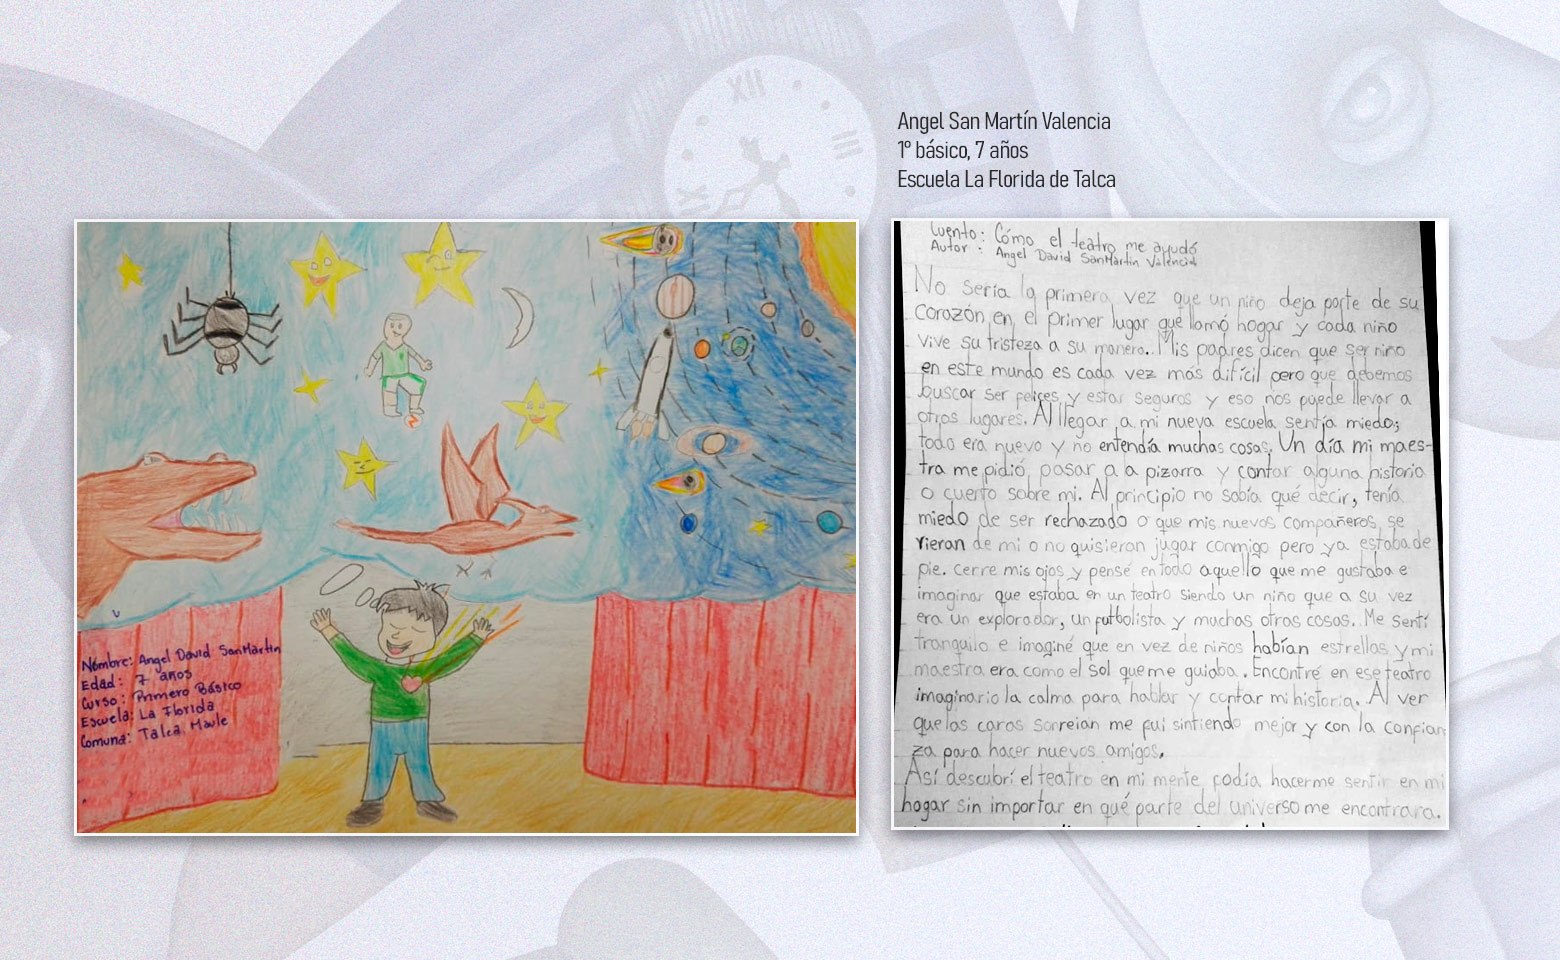 Angel San Martín Valencia
1º básico, 7 años
Escuela La Florida de Talca
Nombre: Angel David SanMartin
Edad: 7 años
Curso: Primero Básico
Escuela: La Florida
Comuna: Talca Maule
Cuento: Cómo el teatro me ayudó
Autor: Angel David SanMartin Valencia
No sería la primera vez que un niño deja parte de su
corazón en el primer lugar que llamó hogar y cada niño
vive su tristeza a su manera.. Mis padres dicen que ser niño
en este mundo es cada vez más difícil pero que debemos
buscar ser felices y estar seguros y eso nos puede llevar a
otros lugares. Al llegar a mi nueva escuela sentía miedo;
todo era nuevo y no entendía muchas cosas. Un día mi maes-
tra me pidió pasar a la pizarra y contar alguna historia
o cuento sobre mi. Al principio no sabía qué decir, tenía
miedo de ser rechazado o que mis nuevos compañeros se
rieran de mi o no quisieran jugar conmigo pero ya estaba de
pie. Cerre mis ojos y pensé en todo aquello que me gustaba e
imaginar que estaba en un teatro siendo un niño que a su vez
era un explorador, un futbolista y muchas otras cosas.. Me sentí
tranquilo e imaginé que en vez de niños habían estrellas y mi
maestra era como el Sol que me guiaba. Encontré en ese teatro
imaginario la calma para hablar y contar mi historia. Al ver
que las caras sonreían me fui sintiendo mejor y con la confian
za para hacer nuevos amigos.
Así descubrí el teatro en mi mente podía hacerme sentir en mi
hogar sin importar en qué parte del universo me encontrara.